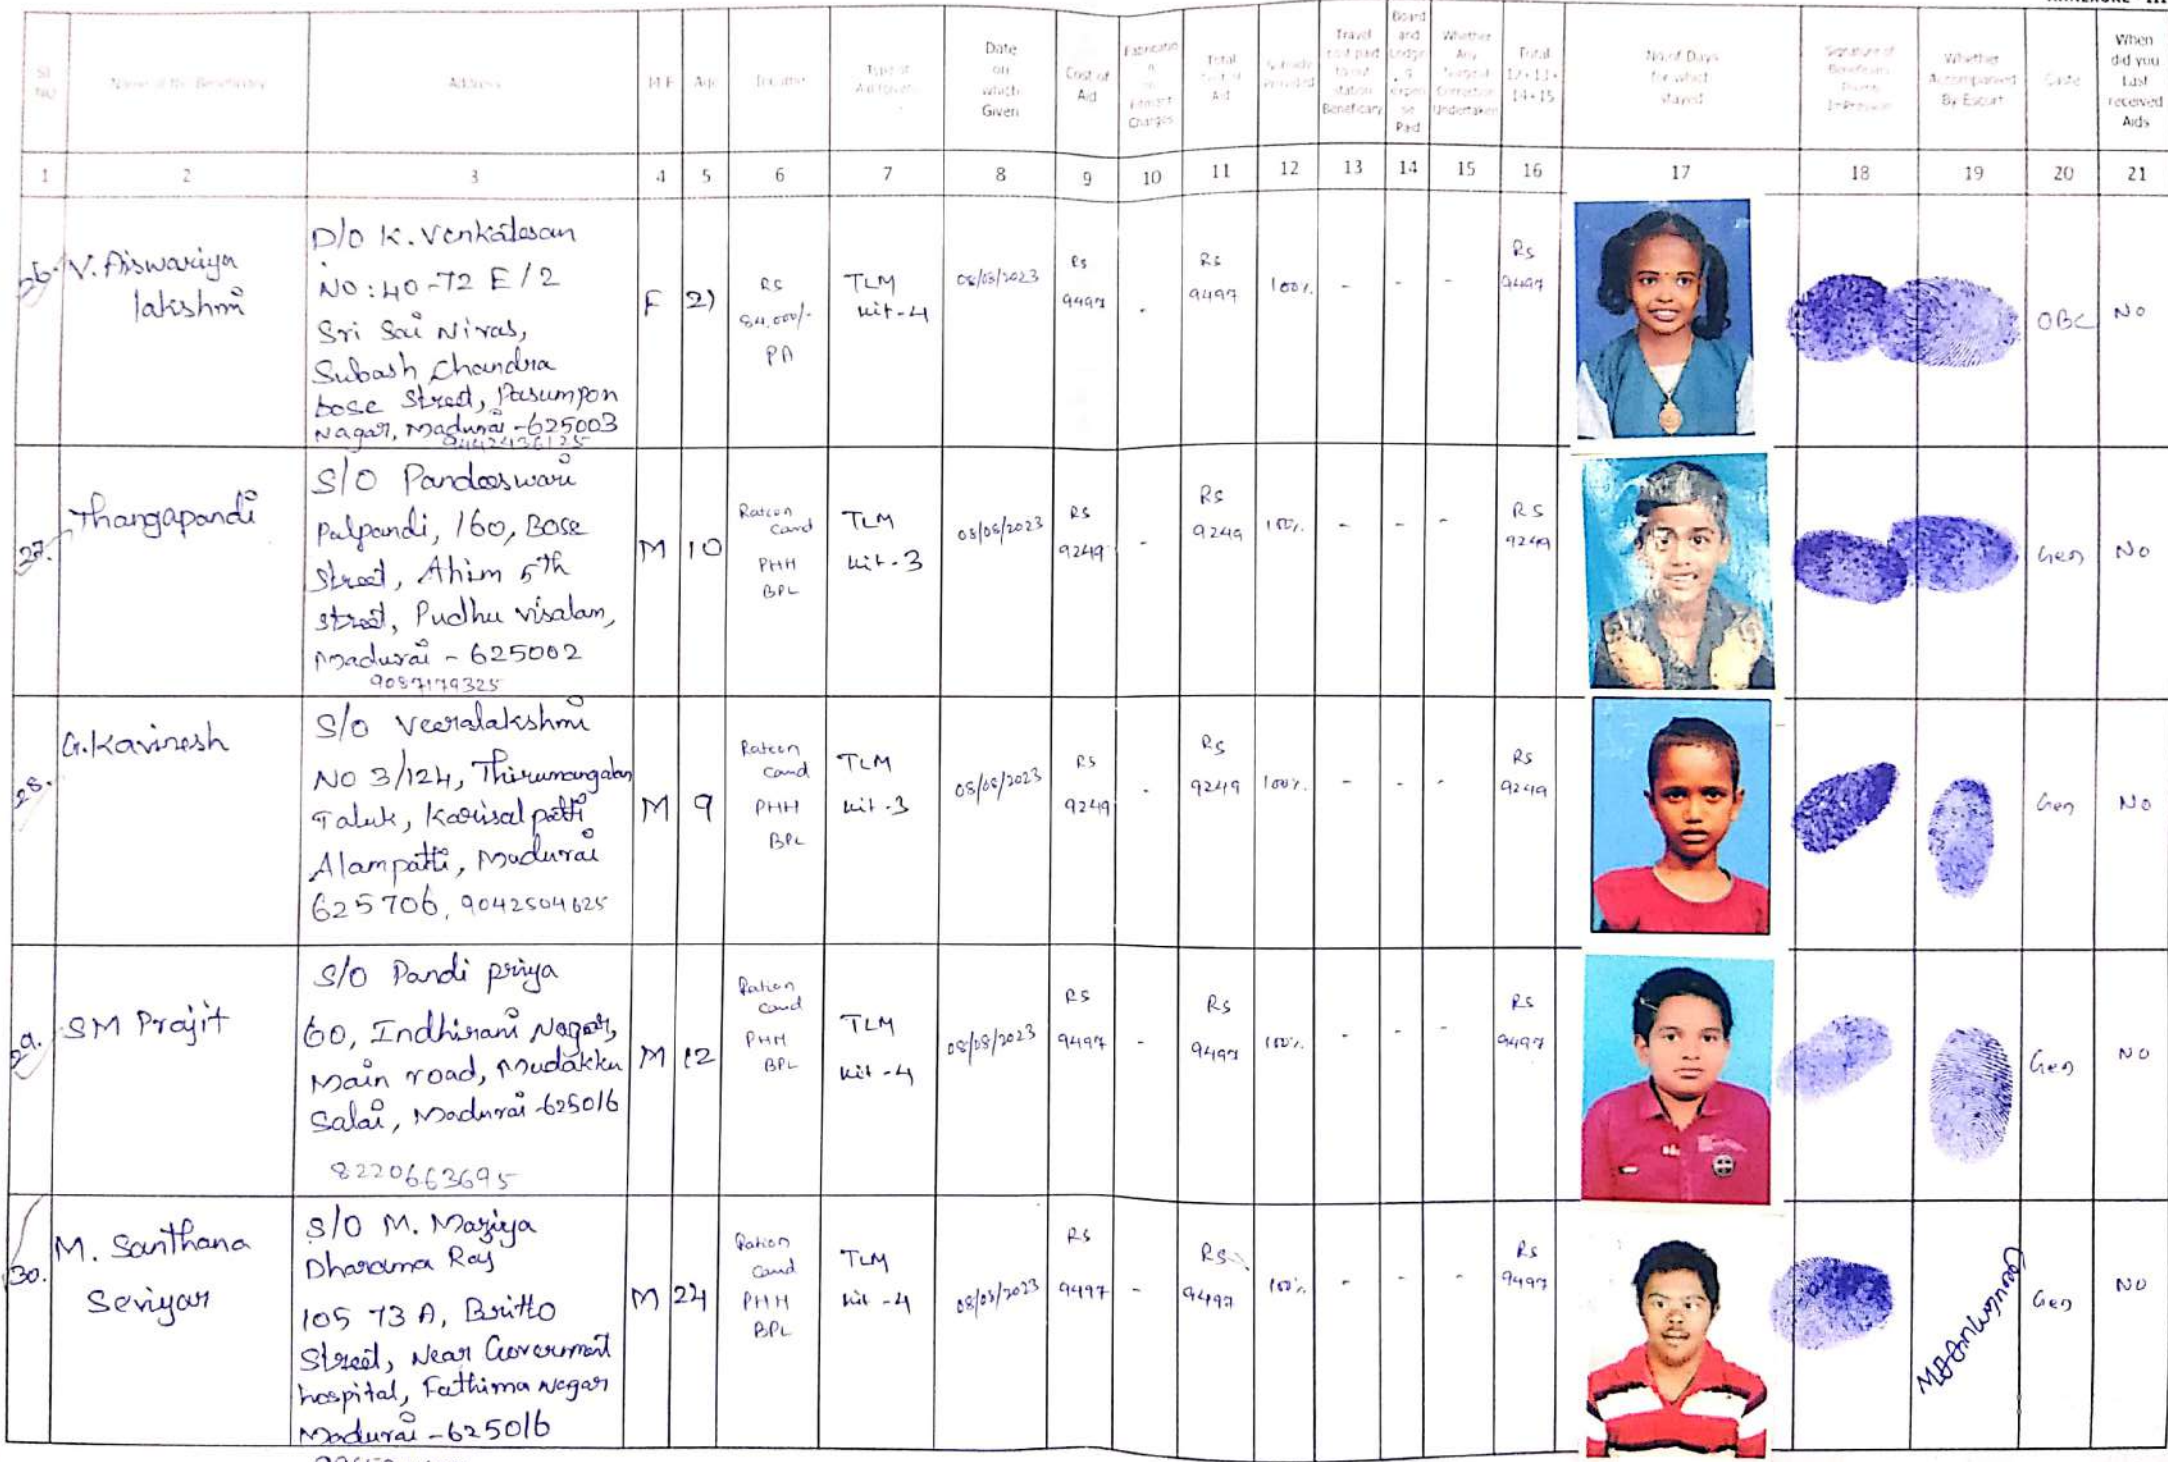 ANNEXURE - III
Sl. No.
Name of the Beneficiary
Address
M F
Age
Income
Type of Aid
Date on which Given
Cost of Aid
Fabrication Charges
Total Cost of Aid
Travel cost paid to out station Beneficiary
Board and Lodging expense Paid
Whether Any Surgical Correction Undertaken
Total 12+13+ 14+15
No. of Days for which stayed
Signature of Beneficiary
Whether Accompanied By Escort
Caste
When did you Last received Aids
1 2 3 4 5 6 7 8 9 10 11 12 13 14 15 16 17 18 19 20 21
26. V. Aiswariya
lakshmi
D/O K. Venkatesan
NO: 40-72 E/2
Sri Sai Nivas,
Subash Chandra
bose Street, Pasumpon
Nagar, Madurai - 625003
9442436125
F
21
RS
84,000/-
PA
TLM
Kit-4
08/08/2023
RS
9497
-
RS
9497
100%
- - -
RS
9497
OBC
NO
27. Thangapandi
S/O Pandeeswari
Palpandi, 160, Bose
Street, Ahim 5th
street, Pudhu visalam,
Madurai - 625002
9087179325
M
10
Ration
Card
PHH
BPL
TLM
Kit-3
08/08/2023
RS
9249
-
RS
9249
100%
- - -
RS
9249
Gen
NO
28. G.Kavinesh
S/O Veeralakshmi
NO 3/124, Thirumangalam
Taluk, Karisalpatti
Alampatti, Madurai
625706, 9042504625
M
9
Ration
Card
PHH
BPL
TLM
Kit-3
08/08/2023
RS
9249
-
RS
9249
100%
- - -
RS
9249
Gen
NO
29. SM Prajit
S/O Pandi priya
60, Indhirani Nagar,
Main road, Mudakku
Salai, Madurai-625016
8220663695
M
12
Ration
Card
PHH
BPL
TLM
Kit-4
08/08/2023
RS
9497
-
RS
9497
100%
- - -
RS
9497
Gen
NO
30. M. Santhana
Seviyar
S/O M. Maziya
Dharama Raj
105 73 A, Britto
Street, Near Government
hospital, Fathima Nagar
Madurai - 625016
M
24
Ration
Card
PHH
BPL
TLM
Kit-4
08/08/2023
RS
9497
-
RS
9497
100%
- - -
RS
9497
Gen
NO